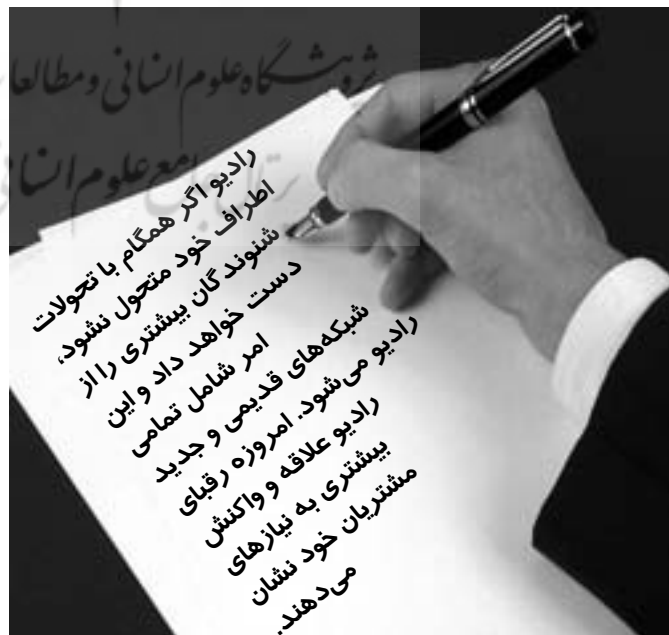 پژوهشگاه علوم انسانی و مطالعا
پرتال جامع علوم انسانی
رادیو اگر همگام با تحولات
اطراف خود متحول نشود،
شنوندگان بیشتری را از
دست خواهد داد و این
امر شامل تمامی
شبکه‌های قدیمی و جدید
رادیو می‌شود. امروزه رقبای
رادیو علاقه و واکنش
بیشتری به نیازهای
مشتریان خود نشان
می‌دهند.